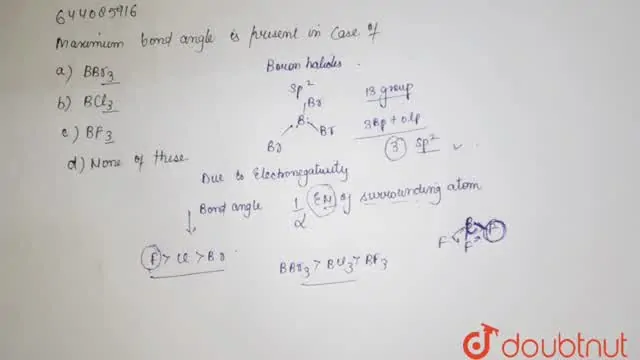 644085916
Maximum bond angle is present in case of
a) BBr3
b) BCl3
c) BF3
d) None of these
Boron halides.
Sp²
Br
B
Br
Br
13 group
3Bp + 0lp
3 Sp²
Due to Electronegativity
Bond angle 1/α EN of surrounding atom
F > Cl > Br
BBr3 > BCl3 > BF3
F
F
F
doubtnut